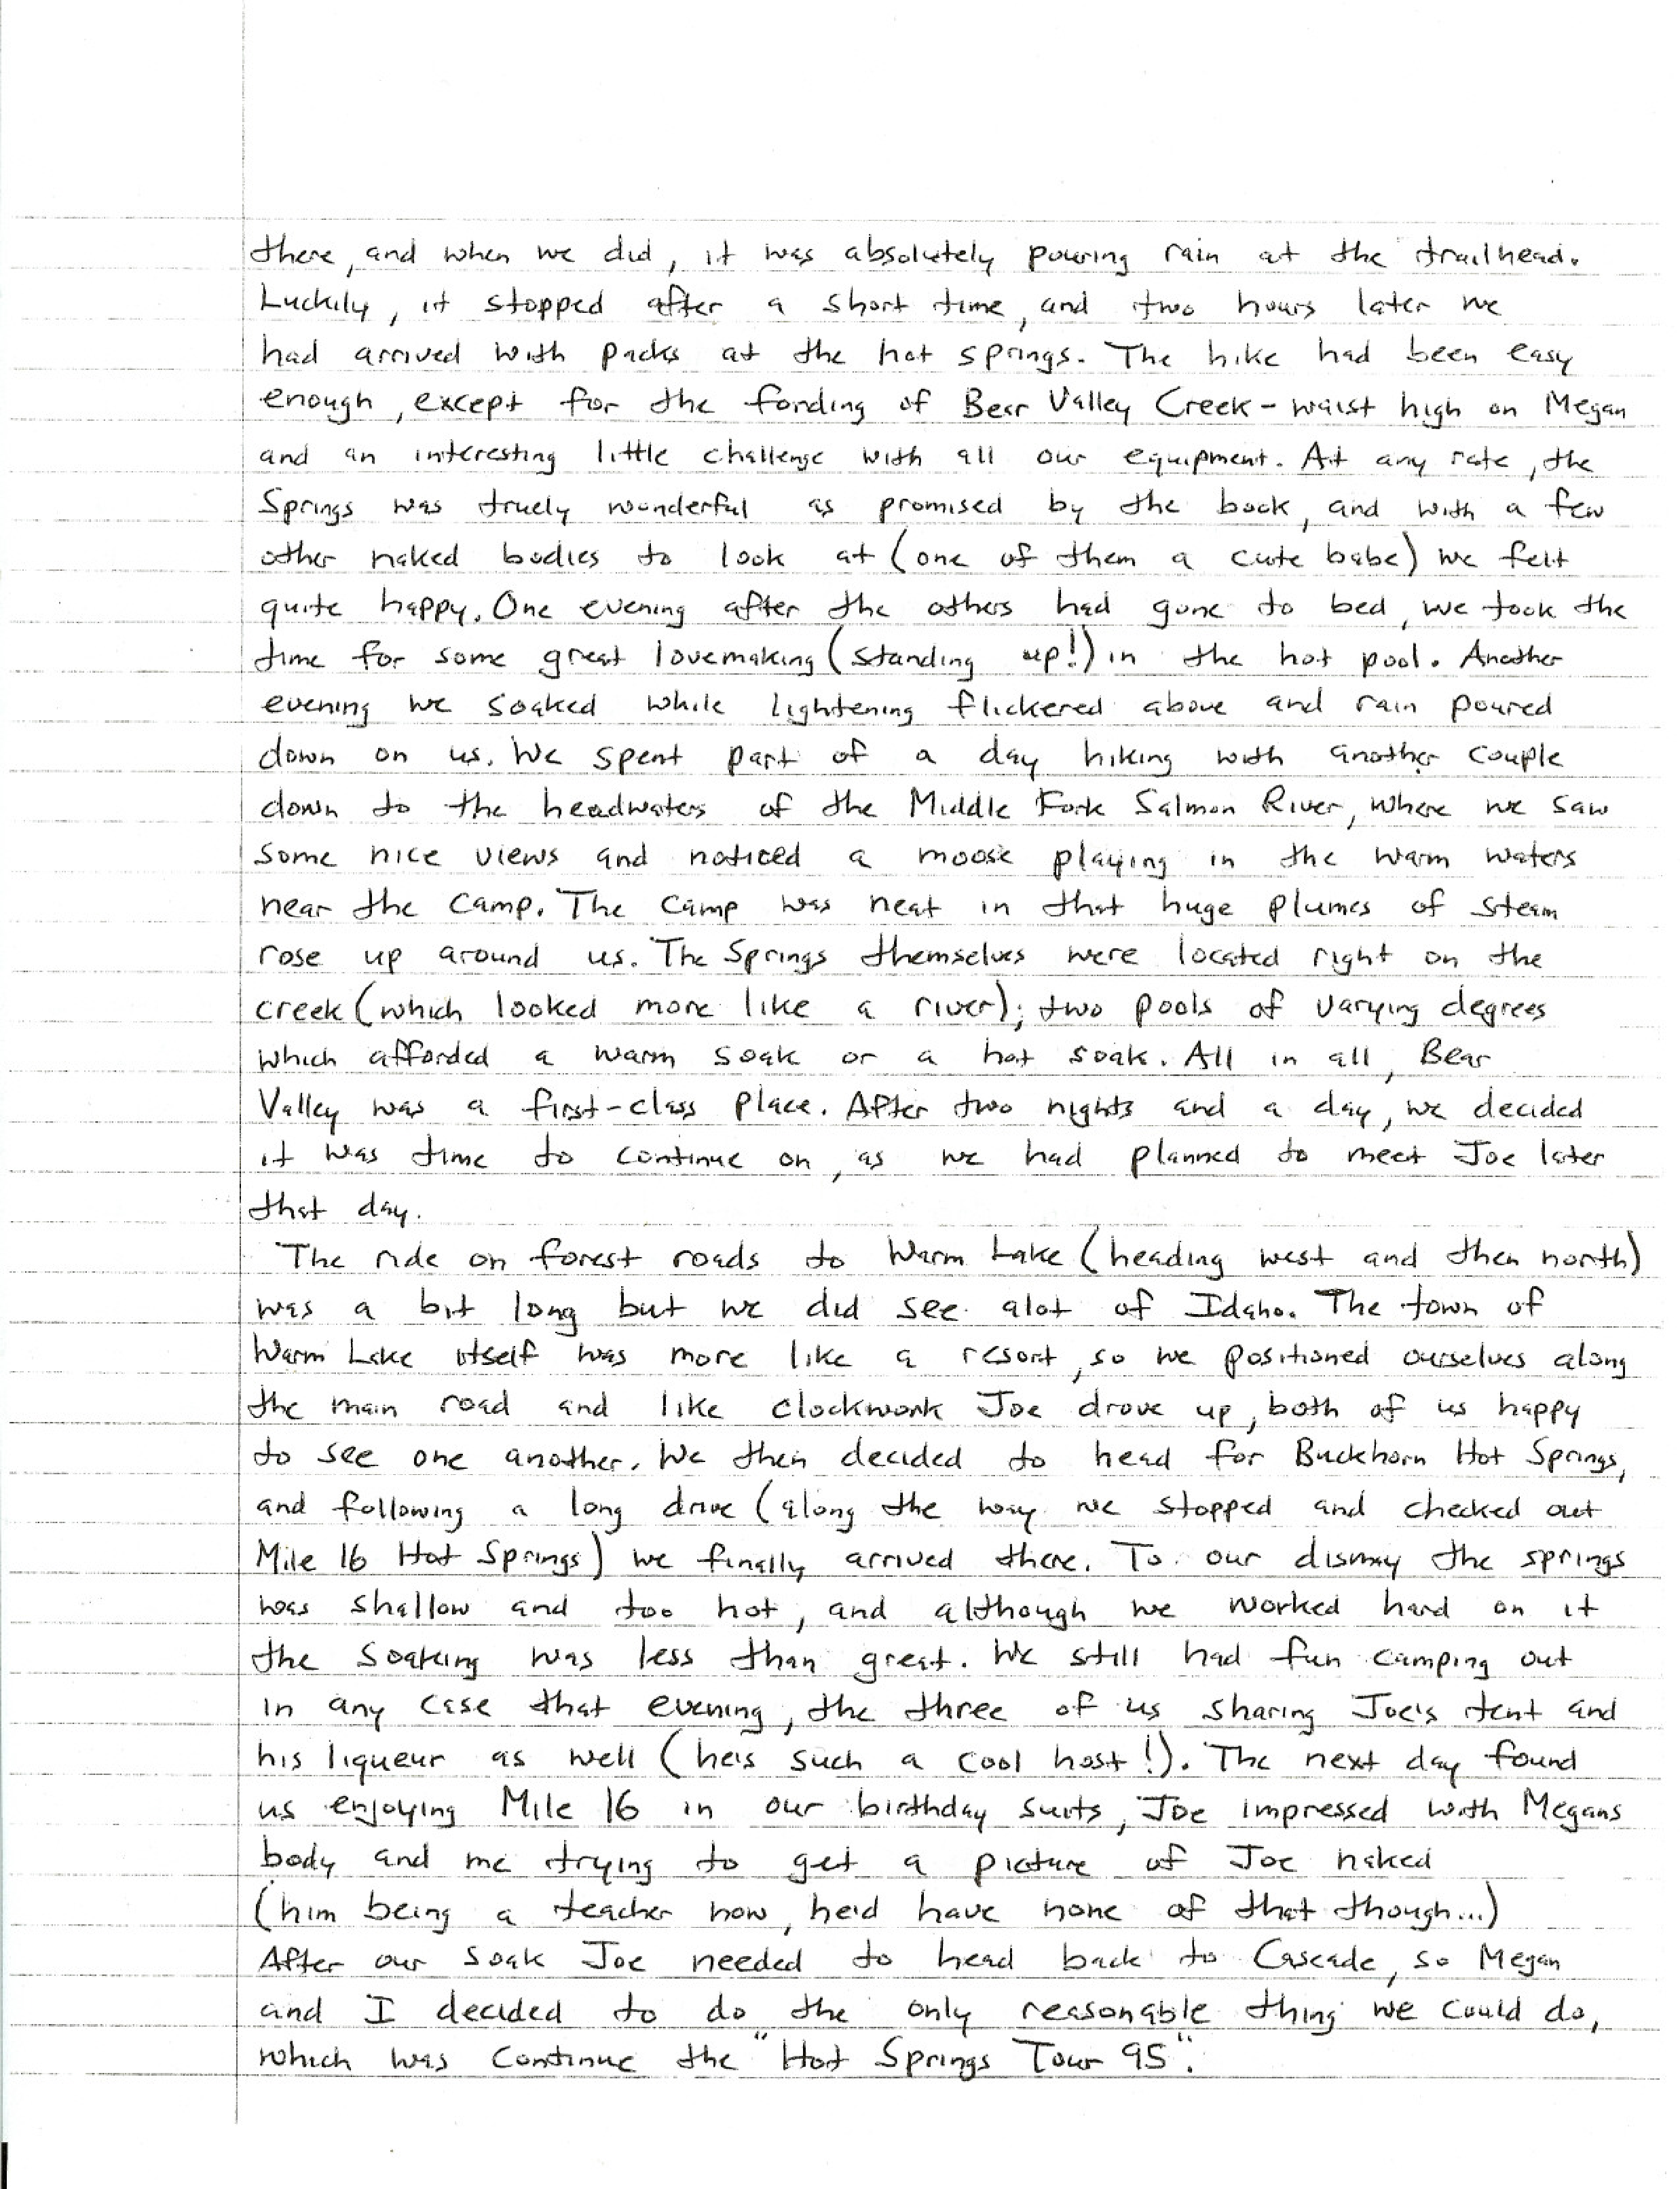 there, and when we did, it was absolutely pouring rain at the trailhead.
Luckily, it stopped after a short time, and two hours later we
had arrived with packs at the hot springs. The hike had been easy
enough, except for the fording of Bear Valley Creek - waist high on Megan
and an interesting little challenge with all our equipment. At any rate, the
Springs was truely wonderful as promised by the book, and with a few
other naked bodies to look at (one of them a cute babe) we felt
quite happy. One evening after the others had gone to bed, we took the
time for some great lovemaking (standing up!) in the hot pool. Another
evening we soaked while lightening flickered above and rain poured
down on us. We spent part of a day hiking with another couple
down to the headwaters of the Middle Fork Salmon River, where we saw
some nice views and noticed a moose playing in the warm waters
near the camp. The camp was neat in that huge plumes of steam
rose up around us. The Springs themselves were located right on the
creek (which looked more like a river); two pools of varying degrees
which afforded a warm soak or a hot soak. All in all, Bear
Valley was a first-class place. After two nights and a day, we decided
it was time to continue on, as we had planned to meet Joe later
that day.
The ride on forest roads to Warm Lake (heading west and then north)
was a bit long but we did see alot of Idaho. The town of
Warm Lake itself was more like a resort, so we positioned ourselves along
the main road and like clockwork Joe drove up, both of us happy
to see one another. We then decided to head for Buckhorn Hot Springs,
and following a long drive (along the way we stopped and checked out
Mile 16 Hot Springs) we finally arrived there. To our dismay the springs
was shallow and too hot, and although we worked hard on it
the soaking was less than great. We still had fun camping out
in any case that evening, the three of us sharing Joe's tent and
his liqueur as well (he's such a cool host!). The next day found
us enjoying Mile 16 in our birthday suits, Joe impressed with Megans
body and me trying to get a picture of Joe naked
(him being a teacher now, he'd have none of that though...)
After our soak Joe needed to head back to Cascade, so Megan
and I decided to do the only reasonable thing we could do,
which was continue the "Hot Springs Tour 95".